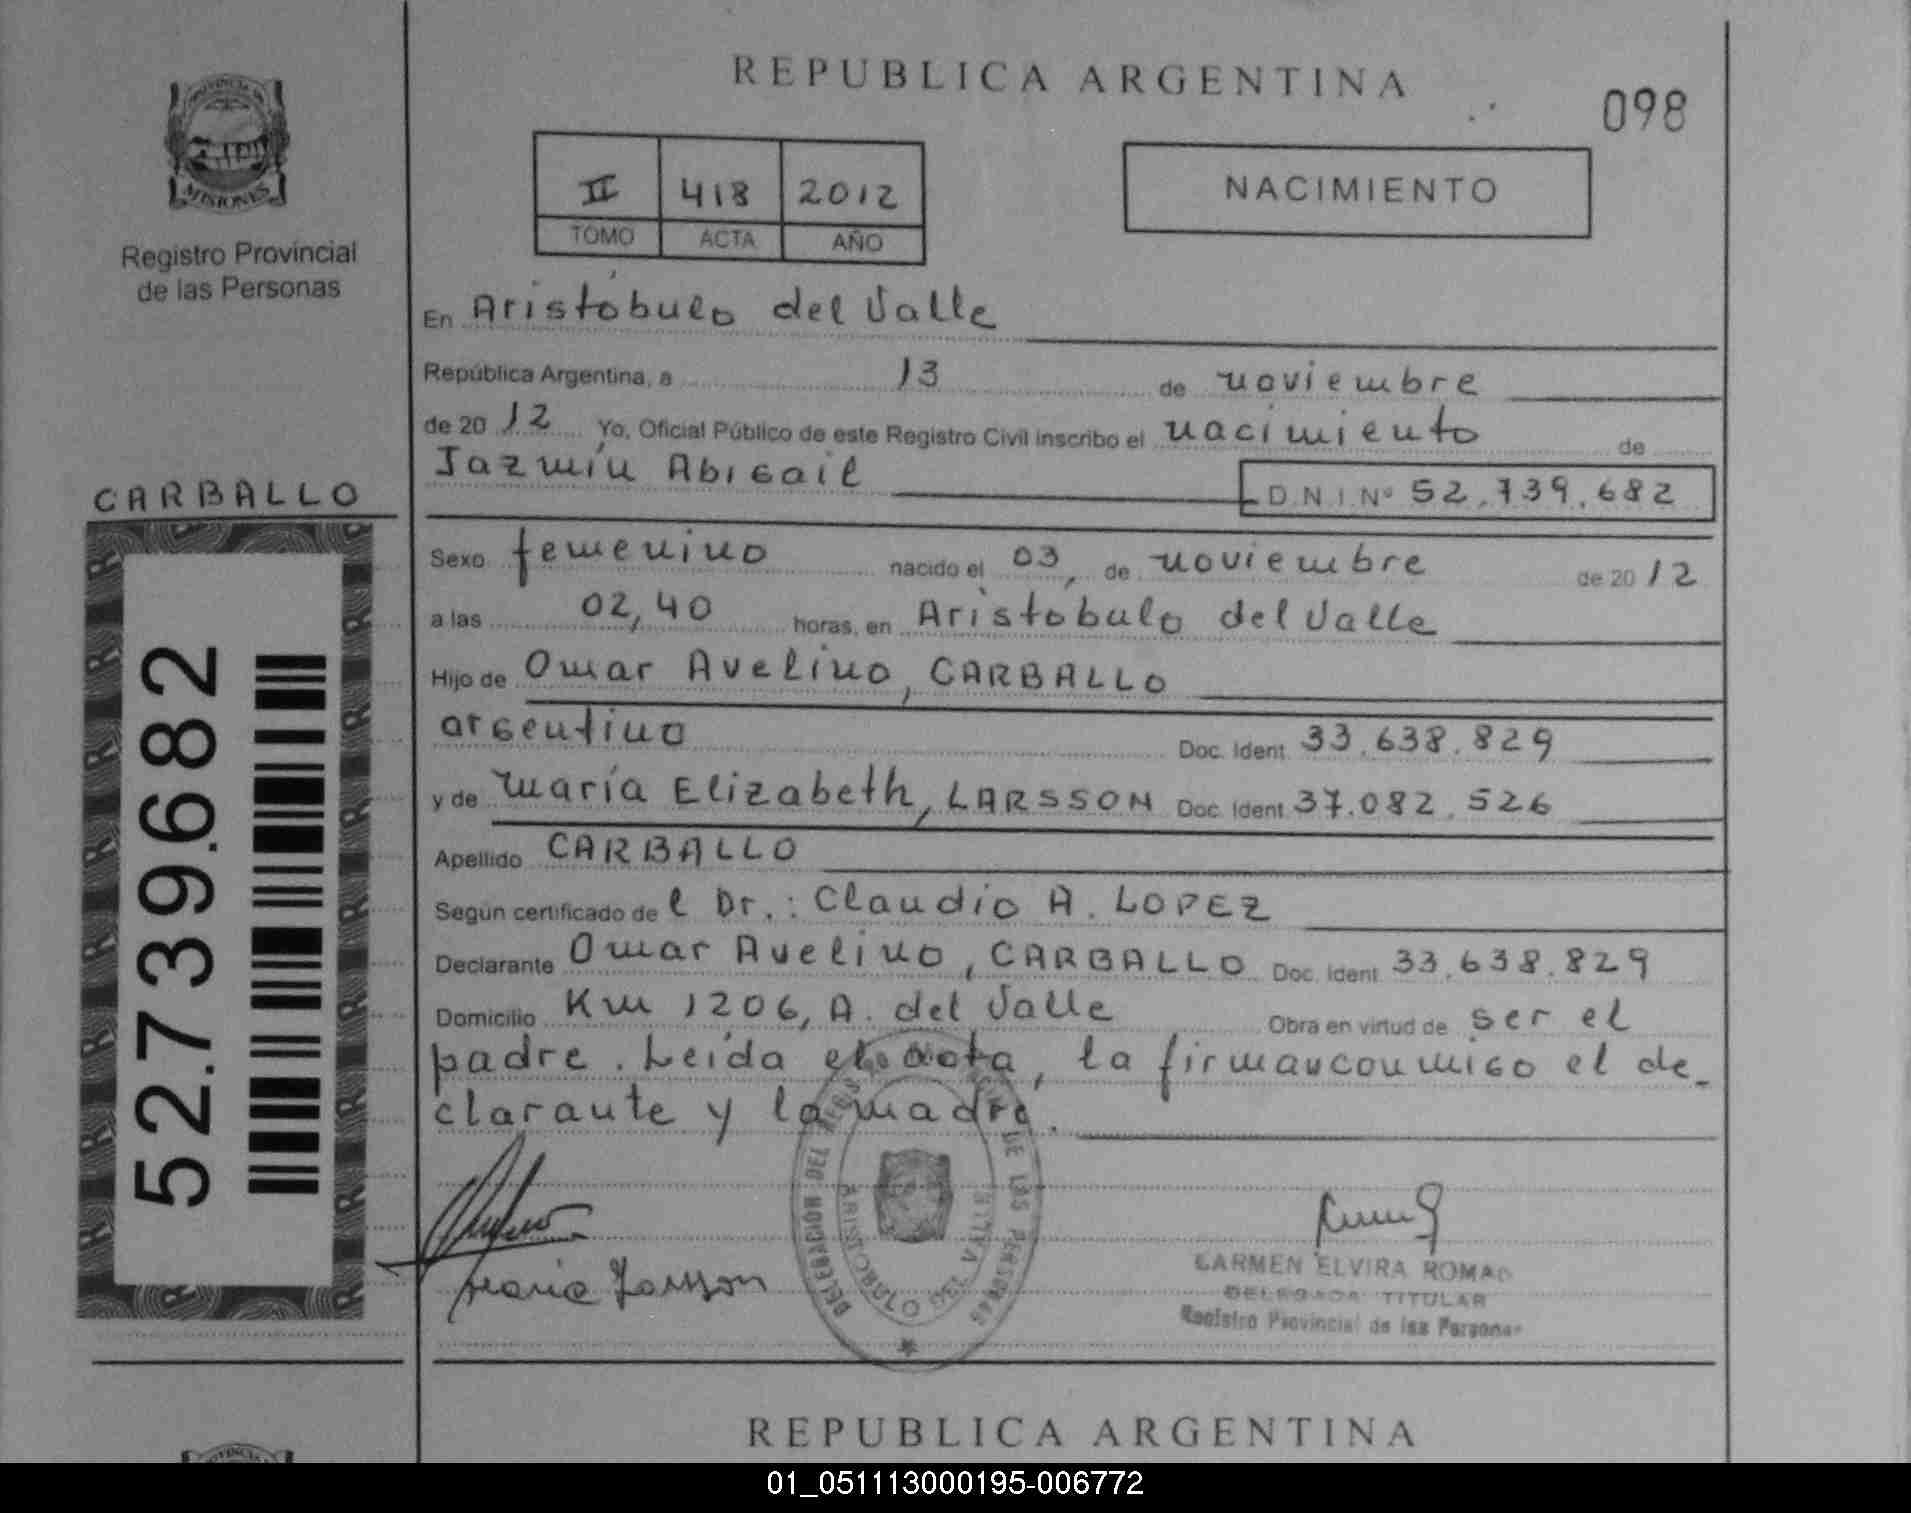 REPUBLICA ARGENTINA
098
PROVINCIA DE
MISIONES
Registro Provincial
de las Personas
II 418 2012
TOMO ACTA AÑO
NACIMIENTO
En Aristóbulo del Valle
República Argentina, a 13 de noviembre
de 20 12 Yo, Oficial Público de este Registro Civil inscribo el nacimiento de
Jazmín Abigail
D.N.I.Nº 52.739.682
CARBALLO
52.739.682
Sexo femenino nacido el 03, de noviembre de 20 12
a las 02,40 horas, en Aristóbulo del Valle
Hijo de Omar Avelino, CARBALLO
argentino Doc. Ident. 33.638.829
y de María Elizabeth, LARSSON Doc. Ident. 37.082.526
Apellido CARBALLO
Según certificado de l Dr.: Claudio A. LOPEZ
Declarante Omar Avelino, CARBALLO Doc. Ident. 33.638.829
Domicilio Km 1206, A. del Valle Obra en virtud de ser el
padre. Leída el acta, la firman conmigo el de-
clarante y la madre.
DELEGACION DEL DE LAS PERSONAS
ARISTOBULO DEL VALLE
Maria Larsson
CARMEN ELVIRA ROMAO
DELEGADA TITULAR
Registro Provincial de las Personas
REPUBLICA ARGENTINA
01_051113000195-006772